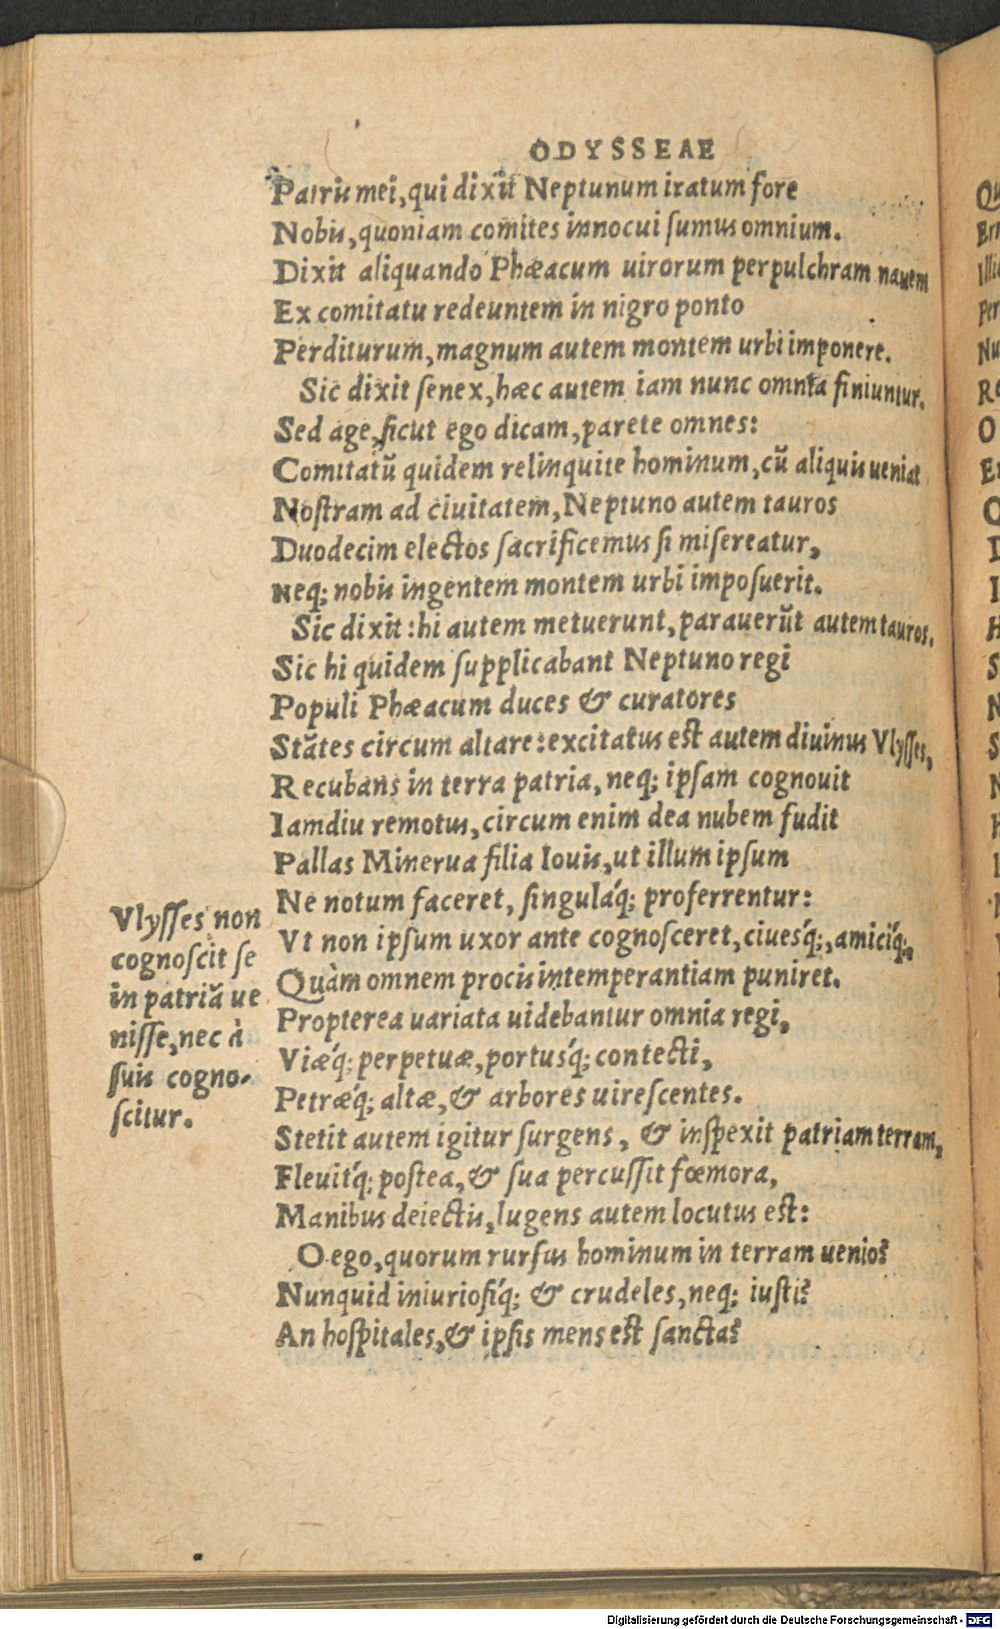 ODYSSEAE
Patris mei, qui dixit Neptunum iratum fore
Nobis, quoniam comites innocui sumus omnium.
Dixit aliquando Phæacum uirorum perpulchram nauem
Ex comitatu redeuntem in nigro ponto
Perditurum, magnum autem montem urbi imponere.
Sic dixit senex, hæc autem iam nunc omnia finiuntur.
Sed age, sicut ego dicam, parete omnes:
Comitatū quidem relinquite hominum, cū aliquis ueniat
Nostram ad ciuitatem, Neptuno autem tauros
Duodecim electos sacrificemus si misereatur,
Neq; nobis ingentem montem urbi imposuerit.
Sic dixit: hi autem metuerunt, parauerūt autem tauros.
Sic hi quidem supplicabant Neptuno regi
Populi Phæacum duces & curatores
Stātes circum altare: excitatus est autem diuinus Vlysses,
Recubans in terra patria, neq; ipsam cognouit
Iamdiu remotus, circum enim dea nubem fudit
Pallas Minerua filia Iouis, ut illum ipsum
Ne notum faceret, singuláq; proferrentur:
Vt non ipsum uxor ante cognosceret, ciuesq́;, amiciq́;,
Quàm omnem procis intemperantiam puniret.
Propterea uariata uidebantur omnia regi,
Viæq́; perpetuæ, portusq́; contecti,
Petræq́; altæ, & arbores uirescentes.
Stetit autem igitur surgens, & inspexit patriam terram,
Fleuitq́; postea, & sua percussit fœmora,
Manibus deiectis, lugens autem locutus est:
O ego, quorum rursus hominum in terram uenio?
Nunquid iniuriosiq́; & crudeles, neq; iusti?
An hospitales, & ipsis mens est sancta?
Vlysses non
cognoscit se
in patriā ue
nisse, nec à
suis cogno-
scitur.
Digitalisierung gefördert durch die Deutsche Forschungsgemeinschaft - DFG